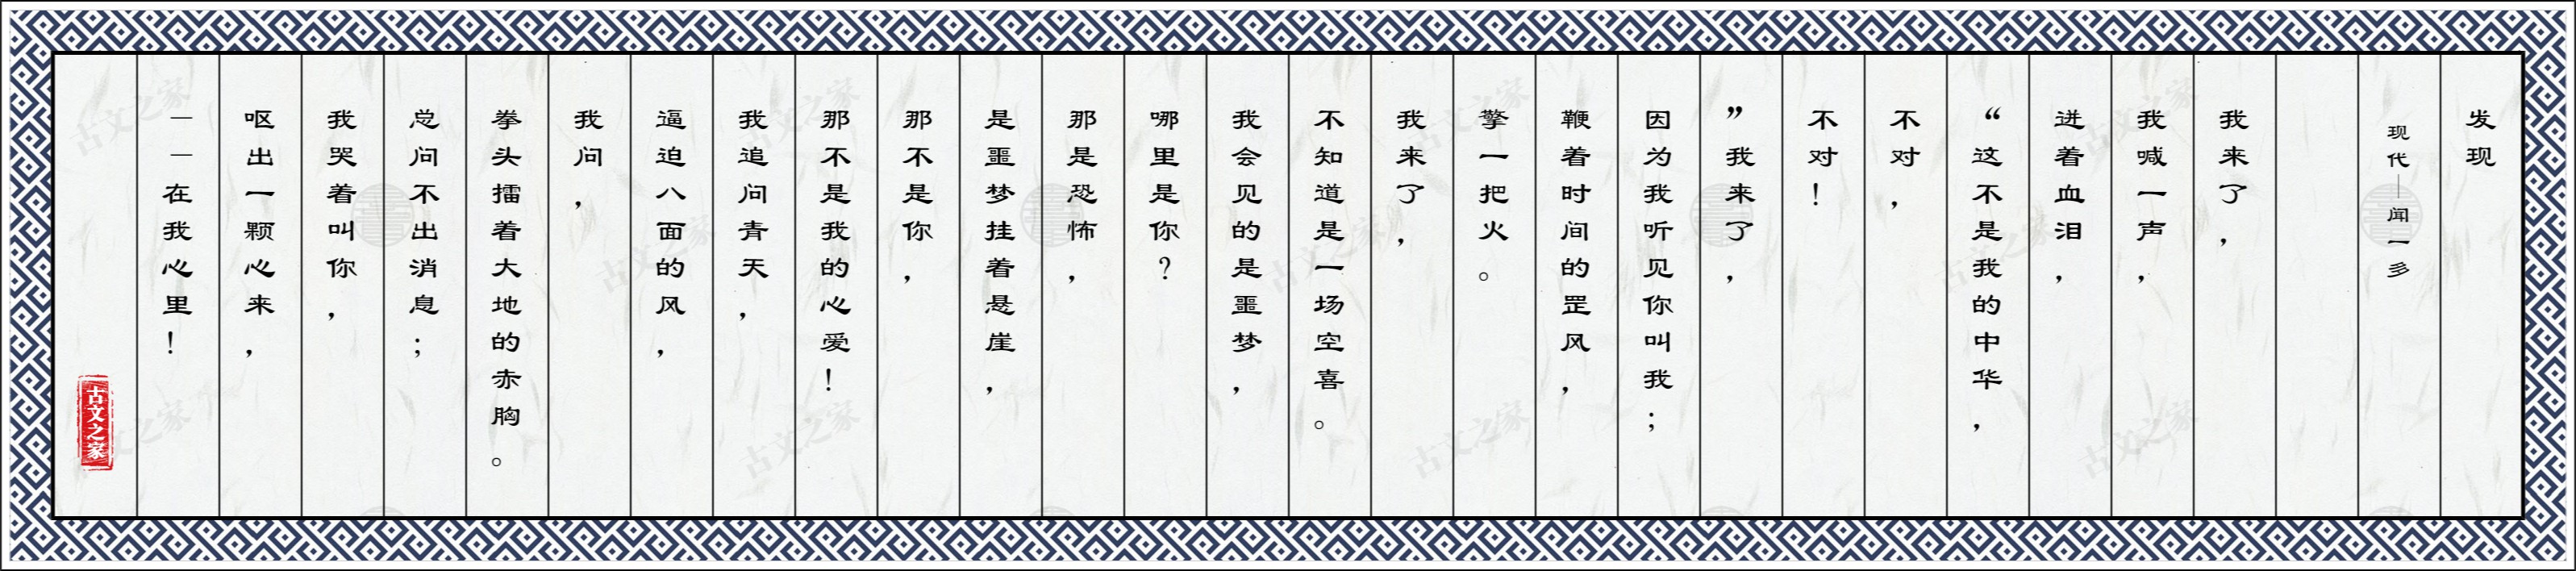 发现
现代——闻一多
我来了，
我喊一声，
迸着血泪，
“这不是我的中华，
不对，
不对！
”我来了，
因为我听见你叫我；
鞭着时间的罡风，
擎一把火。
我来了，
不知道是一场空喜。
我会见的是噩梦，
哪里是你？
那是恐怖，
是噩梦挂着悬崖，
那不是你，
那不是我的心爱！
我追问青天，
逼迫八面的风，
我问，
拳头擂着大地的赤胸。
总问不出消息；
我哭着叫你，
呕出一颗心来，
——在我心里！
古文之家